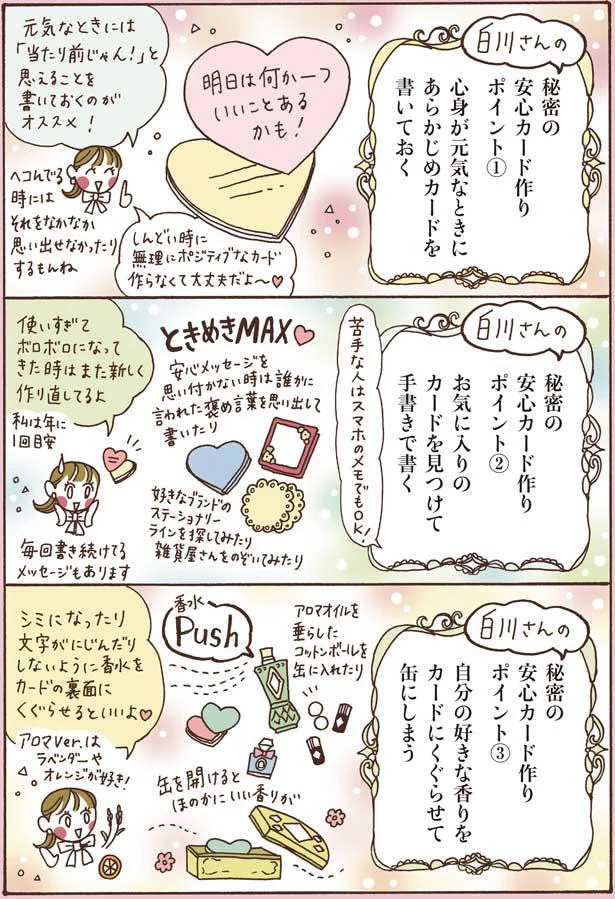 白川さんの
秘密の
安心カード作り
ポイント①
心身が元気なときに
あらかじめカードを
書いておく
明日は何か一つ
いいことある
かも!
元気なときには
「当たり前じゃん!」と
思えることを
書いておくのが
オススメ!
ヘコんでる
時には
それをなかなか
思い出せなかったり
するもんね
しんどい時に
無理にポジティブなカード
作らなくて大丈夫だよ〜♡
白川さんの
秘密の
安心カード作り
ポイント②
お気に入りの
カードを見つけて
手書きで書く
苦手な人はスマホのメモでもOK!
ときめきMAX♡
安心メッセージを
思い付かない時は誰かに
言われた褒め言葉を思い出して
書いたり
好きなブランドの
ステーショナリー
ラインを探してみたり
雑貨屋さんをのぞいてみたり
使いすぎて
ボロボロになって
きた時はまた新しく
作り直してるよ
私は年に
1回目安
毎回書き続けてる
メッセージもあります
白川さんの
秘密の
安心カード作り
ポイント③
自分の好きな香りを
カードにくぐらせて
缶にしまう
アロマオイルを
垂らした
コットンボールを
缶に入れたり
香水
Push
缶を開けると
ほのかにいい香りが
シミになったり
文字がにじんだり
しないように香水を
カードの裏面に
くぐらせるといいよ♡
アロマVer.は
ラベンダーや
オレンジが好き!